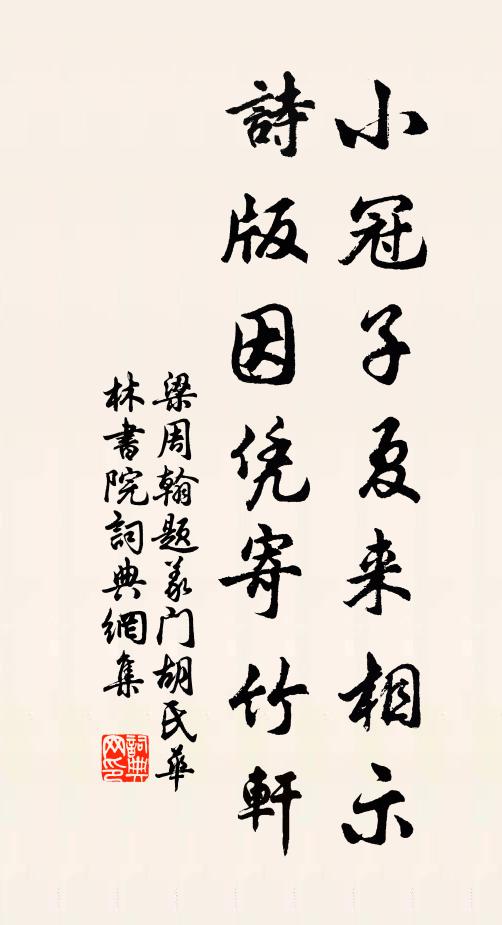 小冠子夏来相示
詩版因凭寄竹軒
梁周翰题义门胡氏華
林書院詞典網集
詞典网印